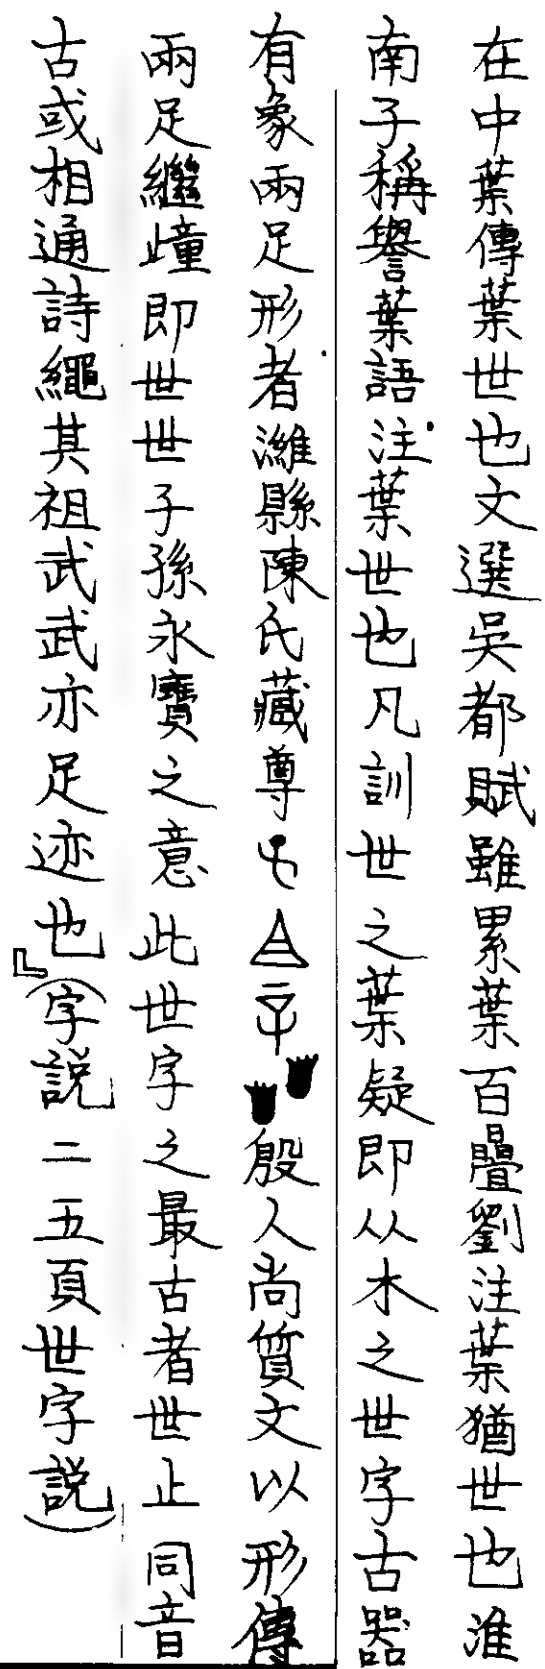 在中葉傳葉世也文選吳都賦雖累葉百疊劉注葉猶世也淮
南子稱譽葉語注葉世也凡訓世之葉疑即从木之世字古器
有象兩足形者濰縣陳氏藏尊殷人尚質文以形傳
兩足繼踵即世世子孫永寶之意此世字之最古者世止同音
古或相通詩繩其祖武武亦足迹也』(字説二五頁世字説)